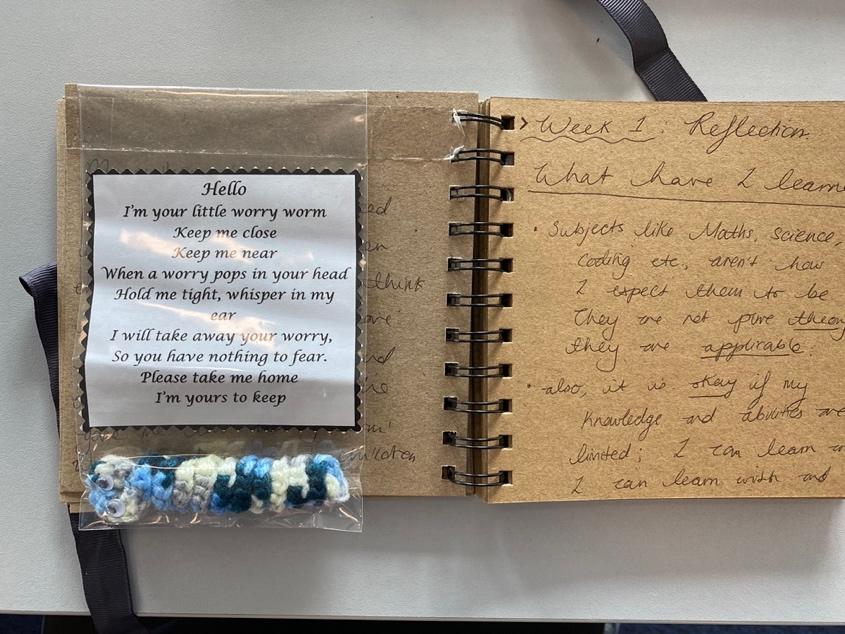 Hello
I'm your little worry worm
Keep me close
Keep me near
When a worry pops in your head
Hold me tight, whisper in my
ear
I will take away your worry,
So you have nothing to fear.
Please take me home
I'm yours to keep
think
> Week 1: Reflection.
What have I learn
• Subjects like Maths, science,
coding etc., aren't how
I expect them to be
They are not pure theory
they are applicable.
• also, it is okay if my
knowledge and abilities are
limited; I can learn
I can learn with and